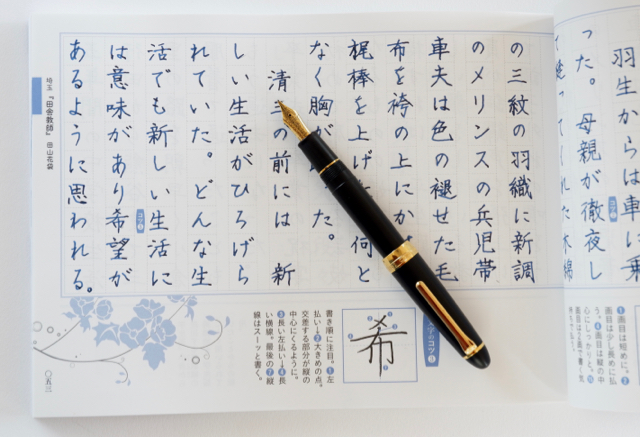 羽生からは車に乗
った。母親が徹夜し
て縫ってくれた木綿
の三紋の羽織に新調
のメリンスの兵児帯
車夫は色の褪せた毛
布を袴の上にか
梶棒を上げ 何と
なく胸が た。
清 の前には 新
しい生活がひろげら
れていた。どんな生
活でも新しい生活に
は意味があり希望が
あるように思われる。
埼玉『田舎教師』田山花袋
画目は短めに。
画目は少し長めに払
う。 画目は縦の中
心にしっかりと。
コツ
希
書き順に注目。❶左
払い→❷大きめの点。
交差する部分が縦の
中心にくるように。
❸長い左払い→❹長
い横線。最後の❼縦
線はスーッと書く。
〇五三